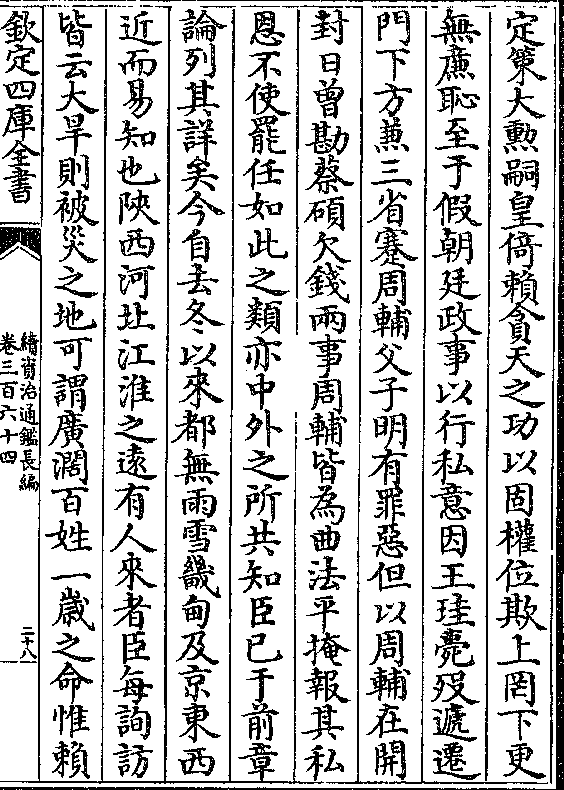 定策大勲嗣皇倚賴貪天之功以固權位欺上罔下更
無亷恥至于假朝廷政事以行私意因王珪薨歿遞遷
門下方兼三省蹇周輔父子明有罪惡但以周輔在開
封日曾勘蔡碩欠錢兩事周輔皆為曲法平掩報其私
恩不使罷任如此之類亦中外之所共知臣已于前章
論列其詳矣今自去冬以來都無雨雪畿甸及京東西
近而易知也陝西河北江淮之逺有人來者臣每詢訪
皆云大旱則被災之地可謂廣濶百姓一嵗之命惟賴
欽定四庫全書
續資治通鑑長編
卷三百六十四
二十八